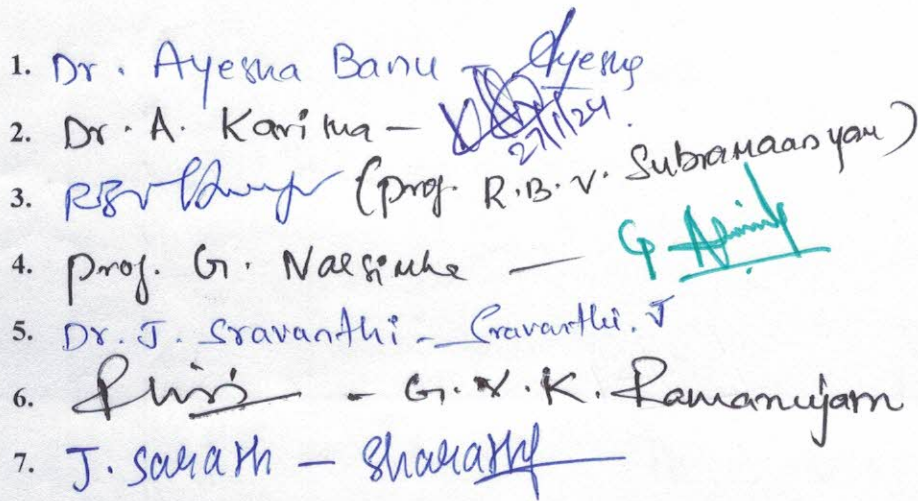 1. Dr. Ayesha Banu - Ayesha
2. Dr. A. Karima - 27/1/24.
3. RBV (Prof. R.B.V. Subramaanyam)
4. Prof. G. Narsimha - G
5. Dr. J. Sravanthi - Sravanthi. J
6. - G. V. K. Ramanujam
7. J. Sarath - Sharath